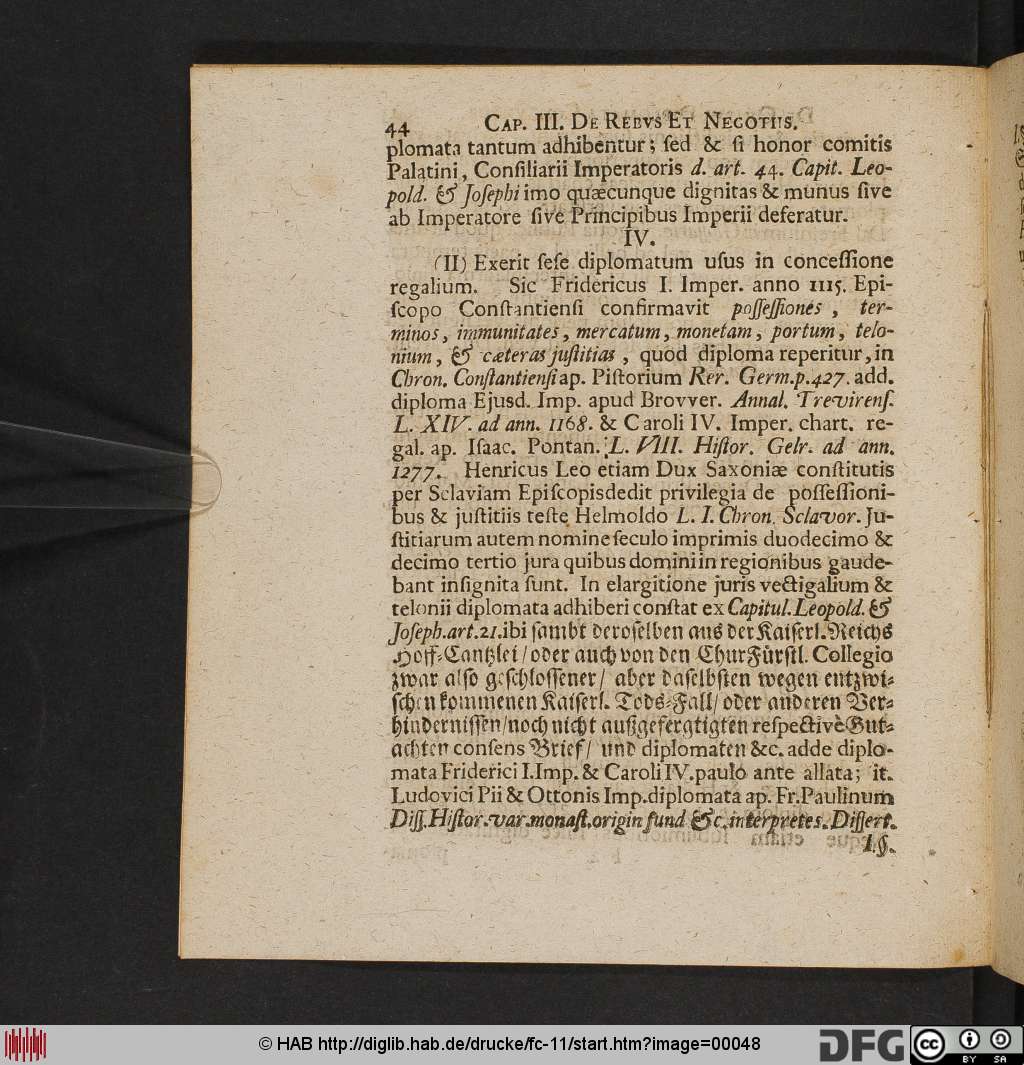 44 CAP. III. DE REBVS ET NEGOTIIS.
plomata tantum adhibentur; ſed & ſi honor comitis
Palatini, Conſiliarii Imperatoris d. art. 44. Capit. Leo-
pold. & Joſephi imo quæcunque dignitas & munus ſive
ab Imperatore ſive Principibus Imperii deferatur.
IV.
(II) Exerit ſeſe diplomatum uſus in conceſſione
regalium. Sic Fridericus I. Imper. anno 1115. Epi-
ſcopo Conſtantienſi confirmavit poſſeſſiones, ter-
minos, immunitates, mercatum, monetam, portum, telo-
nium, & cæteras juſtitias, quod diploma reperitur, in
Chron. Conſtantienſi ap. Piſtorium Rer. Germ. p. 427. add.
diploma Ejusd. Imp. apud Brovver. Annal. Trevirenſ.
L. XIV. ad ann. 1168. & Caroli IV. Imper. chart. re-
gal. ap. Iſaac. Pontan. L. VIII. Hiſtor. Gelr. ad ann.
1277. Henricus Leo etiam Dux Saxoniæ conſtitutis
per Sclaviam Epiſcopisdedit privilegia de poſſeſſioni-
bus & juſtitiis teſte Helmoldo L. I. Chron. Sclavor. Ju-
ſtitiarum autem nomine ſeculo imprimis duodecimo &
decimo tertio jura quibus domini in regionibus gaude-
bant inſignita ſunt. In elargitione juris vectigalium &
telonii diplomata adhiberi conſtat ex Capitul. Leopold. &
Joſeph. art. 21. ibi ſambt deroſelben aus der Kaiſerl. Reichs
Hoff-Cantzlei / oder auch von den ChurFürſtl. Collegio
zwar alſo geſchloſſener / aber daſelbſten wegen entzwi-
ſchen kommenen Kaiſerl. Tods-Fall / oder anderen Ver-
hindernisſen / noch nicht außgefergtigten reſpectivè Gut-
achten conſens Brief / und diplomaten &c. adde diplo-
mata Friderici I. Imp. & Caroli IV. paulo ante allata; it.
Ludovici Pii & Ottonis Imp. diplomata ap. Fr. Paulinum
Diſſ. Hiſtor. var. monaſt. origin fund & c. interpretes. Diſſert.
I. §.
© HAB http://diglib.hab.de/drucke/fc-11/start.htm?image=00048
DFG
cc BY SA